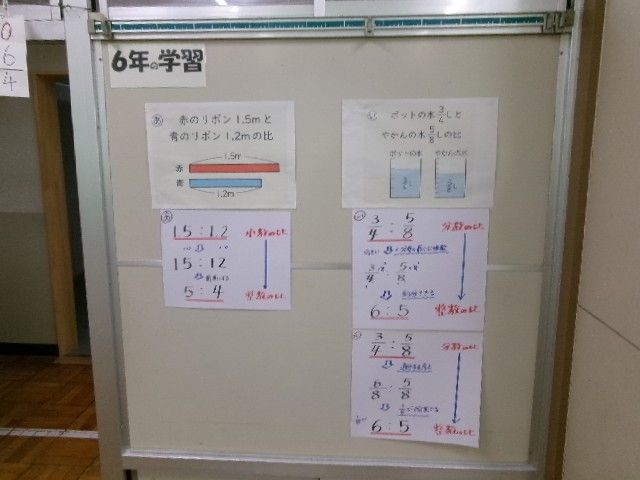 0
6
4
6年の学習
あ 赤のリボン1.5mと
青のリボン1.2mの比
1.5m
赤
青
1.2m
い ポットの水3/4Lと
やかんの水5/8Lの比
ポットの水 やかんの水
あ
1.5:1.2 小数の比
15:12
5:4 整数の比
い
3/4:5/8 分数の比
6:5 整数の比
3/4:5/8 分数の比
通分する
6/8:5/8
6:5 整数の比